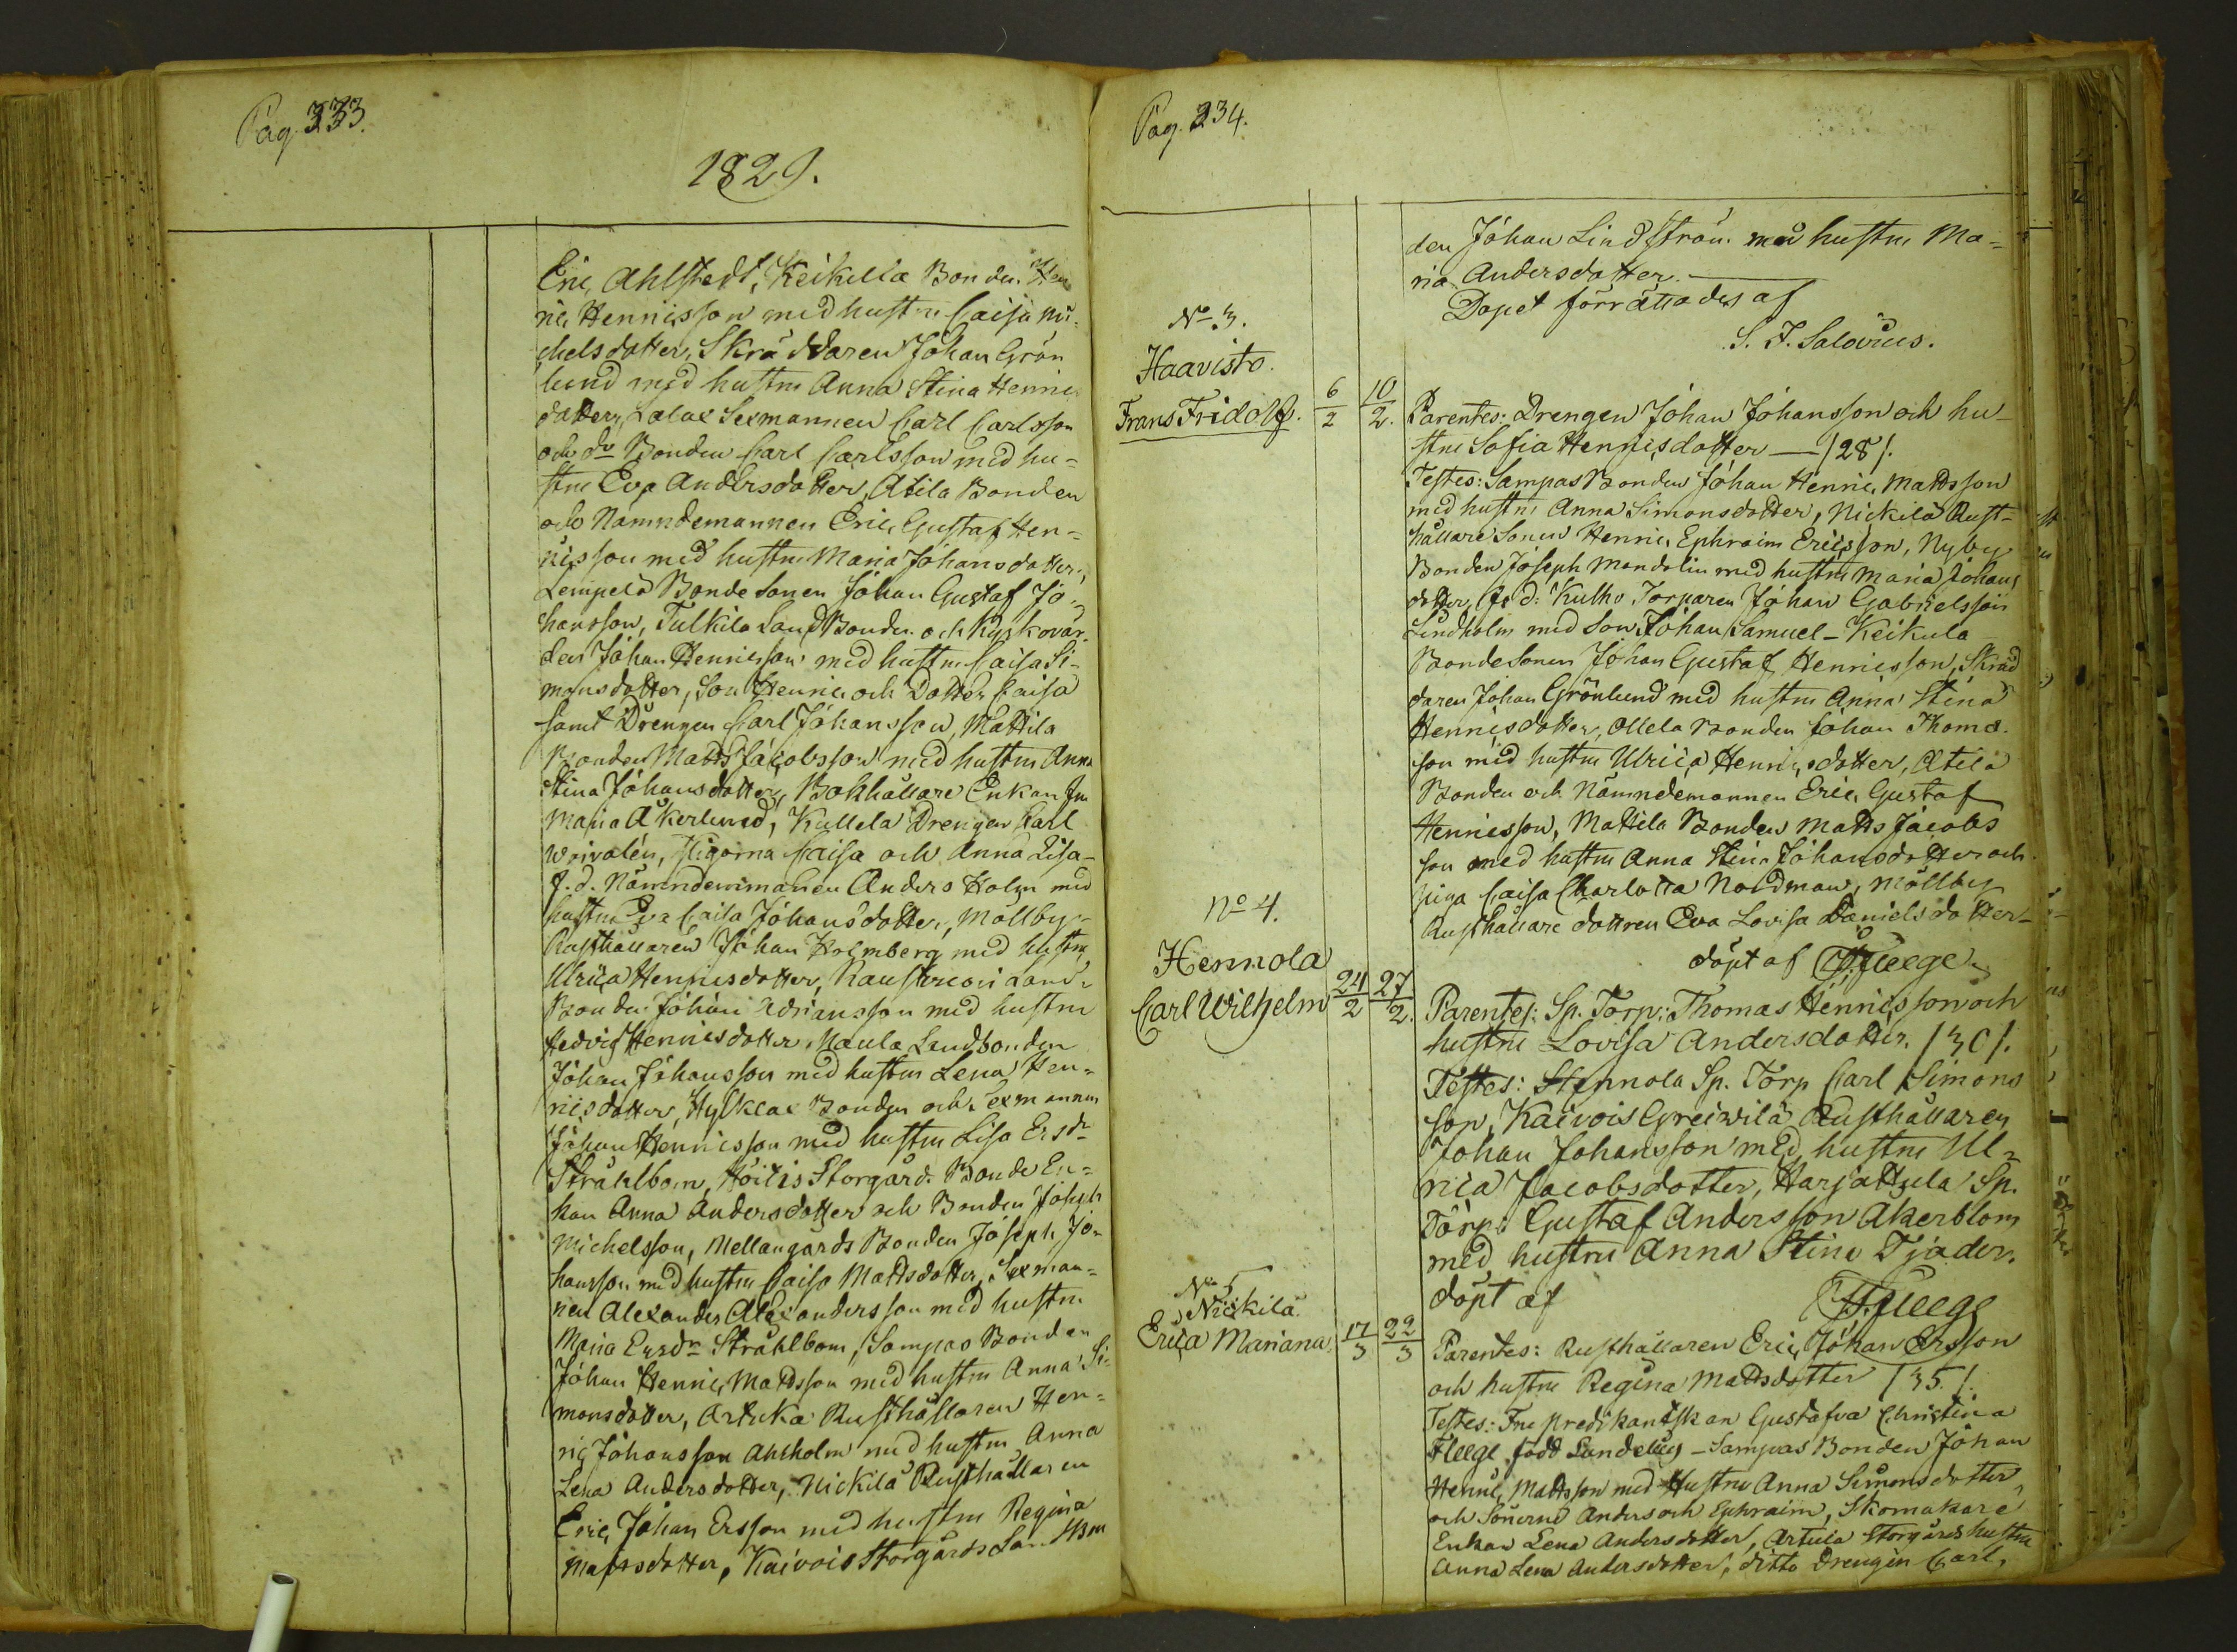 Pag. 333.
1829.
Eric Ahlstedt, Keikilla Bonden Hen
ric Henricsson med hustru Caisa Mi-
chelsdotter, Skräddaren Johan Grön
lund med hustru Anna Stina Henrics
dotter, Lalax Sexmannen Carl Carlsson
och do Bonden Carl Carlsson med hu-
stru Eva Andersdotter, Atila Bonden
och Nämndemannen Eric Gustaf Hen-
ricsson med hustru Maria Johansdotter,
Lempelä Bondesonen Johan Gustaf Jo-
hansson, Tulkila Landbonden och Kyrkovär-
den Johan Henricsson med hustru Caisa Si-
monsdotter, Son Henric och Dotter Caisa
samt Drengen Carl Johansson, Mattila
Bonden Matts Jacobsson med hustru Anna
Stina Johansdotter, Bokhållare Enkan Fru
Maria Åkerlund, Kullela Drengen Carl
Woivalén, Pigorna Caisa och Anna Lisa -
f.d. Nämndemannen Anders Holm med
hustru Eva Caisa Johansdotter, Möllby -
Rusthållaren Johan Holmberg med hustru
Ulrica Henricsdotter, Land-
Bonden Johan Adriansson med hustru
Hedvig Henricsdotter, Maula Landbonden
Johan Johansson med hustru Lena Hen-
ricsdotter, Bonden och Sexmannen
Johan Henricsson med hustru Lisa Ersdr
Stråhlbom, Storgårds Bonde En-
kan Anna Andersdotter och Bonden Joseph
Michelsson, Mellangårds Bonden Joseph Jo-
hansson med hustru Caisa Mattsdotter, Sexman-
nen Alexander Alexandersson med hustru
Maria Ersdr Stråhlbom, Sampas Bonden
Johan Henric Mattsson med hustru Anna Si-
monsdotter, Artuka Rusthållaren Hen-
ric Johansson Ahlholm med hustru Anna
Lena Andersdotter, Nickilä Rusthållaren
Eric Johan Ersson med hustru Regina
Mattsdotter, Kaivois Storgårds
Pag. 234.
den Johan Lindström med hustru Ma-
ria Andersdotter.
Dopet förrättades af
S. J. Salovius.
No. 3.
Haavisto.
Frans Fridolf. 6/2 10/2.
Parentes: Drengen Johan Johansson och hu-
stru Sofia Henricsdotter — /28/.
Testes: Sampas Bonden Johan Henric Mattsson
med hustru Anna Simonsdotter, Nickilä Rust-
hållare Sonen Henric Ephraim Ericsson, Nyby
Bonden Joseph Mandelin med hustru Maria Johans
dotter, f.d. Kulho Torparen Johan Gabrielsson
Lindholm med Son Johan Samuel - Keikula
Bondesonen Johan Gustaf Henricsson, Skräd
daren Johan Grönlund med hustru Anna Stina
Henricsdotter, Ollela Bonden Johan Thoma-
son med hustru Ulrica Henricsdotter, Atila
Bonden och Nämndemannen Eric Gustaf
Henricsson, Mattila Bonden Matts Jacobs
son med hustru Anna Stina Johansdotter och
Piga Caisa Charlotta Nordman, Möllby
Rusthållare dottren Eva Lovisa Danielsdotter -
döpt af Fleege
No 4.
Hennola
Carl Wilhelm 24/2 27/2.
Parentes: Sp. Torp: Thomas Henricsson och
hustru Lovisa Andersdotter. /30/.
Testes: Hennola Sp. Torp Carl Simons
son, Kaivois Greiwilä Rusthållaren
Johan Johansson med hustru Ul-
rica Jacobsdotter, Harjattula Sp.
Torp: Gustaf Andersson Åkerblom
med hustru Anna Stina Tjader.
döpt af Fleege
No 5
Nickilä
Erica Mariana 17/3 22/3
Parentes: Rusthållaren Eric Johan Ersson
och hustru Regina Mattsdotter /35/.
Testes: Fru Predikantskan Gustafva Christina
Fleege född Sundelius - Sampas Bonden Johan
Henric Mattsson med Hustru Anna Simonsdotter
och Sönerne Anders och Ephraim, Skomakare
Enkan Lena Andersdotter, Artula Storgårds hustru
Anna Lena Andersdotter, ditto Drengen Carl,